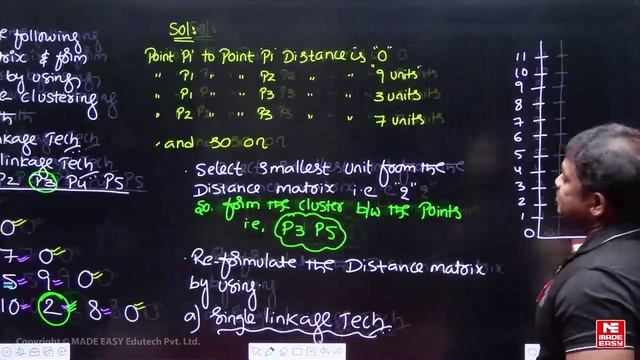 Sol:
e following
trix & form
by using
e clustering
th
inkage Tech
linkage Tech
P2 P3 P4 P5
0
7 0
5 9 0
10 2 8 0
Point P1 to Point P1 Distance is "0"
" P1 " " P2 " " "9 units"
" P1 " " P3 " " 3 units
" P2 " " P3 " " 7 units
, and so on
. Select smallest unit from the
Distance matrix i.e "2"
So. form the cluster b/w the Points
i.e, P3 P5
. Re-formulate the Distance matrix
by using.
a) Single linkage Tech
11
10
9
8
7
6
5
4
3
2
1
0
Copyright © MADE EASY Edutech Pvt. Ltd.
MADE EASY